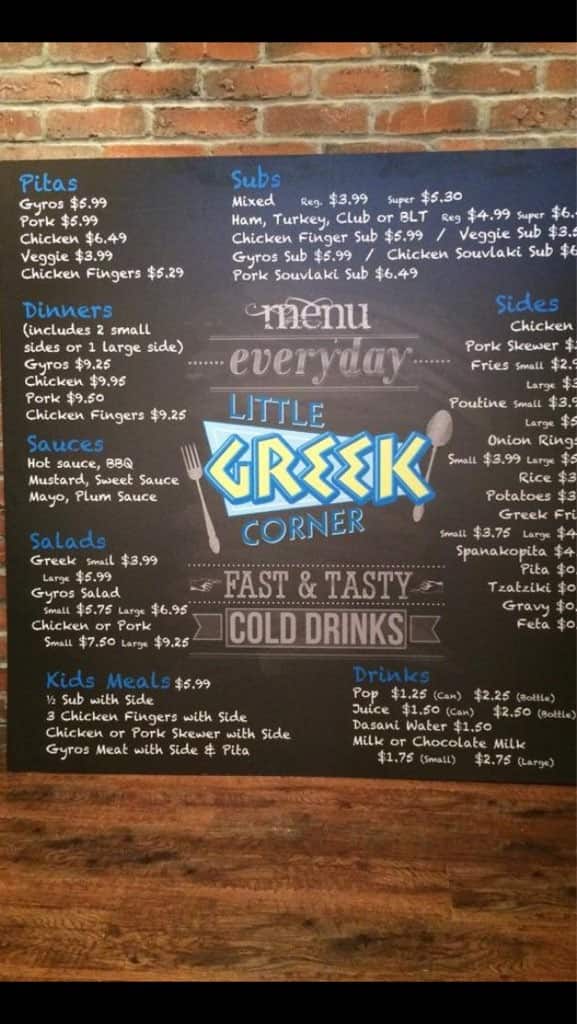 Pitas
Gyros $5.99
Pork $5.99
Chicken $6.49
Veggie $3.99
Chicken Fingers $5.29
Subs
Mixed Reg. $3.99 Super $5.30
Ham, Turkey, Club or BLT Reg $4.99 Super $6.
Chicken Finger Sub $5.99 / Veggie Sub $3.5
Gyros Sub $5.99 / Chicken Souvlaki Sub $6
Pork Souvlaki Sub $6.49
Dinners
(includes 2 small
sides or 1 large side)
Gyros $9.25
Chicken $9.95
Pork $9.50
Chicken Fingers $9.25
Sauces
Hot sauce, BBQ
Mustard, Sweet Sauce
Mayo, Plum Sauce
Salads
Greek Small $3.99
Large $5.99
Gyros Salad
Small $5.75 Large $6.95
Chicken or Pork
Small $7.50 Large $9.25
menu
everyday
LITTLE
GREEK
CORNER
FAST & TASTY
COLD DRINKS
Sides
Chicken
Pork Skewer $
Fries Small $2.
Large $
Poutine Small $3.9
Large $5
Onion Rings
Small $3.99 Large $5
Rice $3
Potatoes $3
Greek Fri
Small $3.75 Large $4
Spanakopita $4
Pita $0
Tzatziki $0
Gravy $0
Feta $0
Kids Meals $5.99
½ Sub with Side
3 Chicken Fingers with Side
Chicken or Pork Skewer with Side
Gyros Meat with Side & Pita
Drinks
Pop $1.25 (Can) $2.25 (Bottle)
Juice $1.50 (Can) $2.50 (Bottle)
Dasani Water $1.50
Milk or Chocolate Milk
$1.75 (Small) $2.75 (Large)